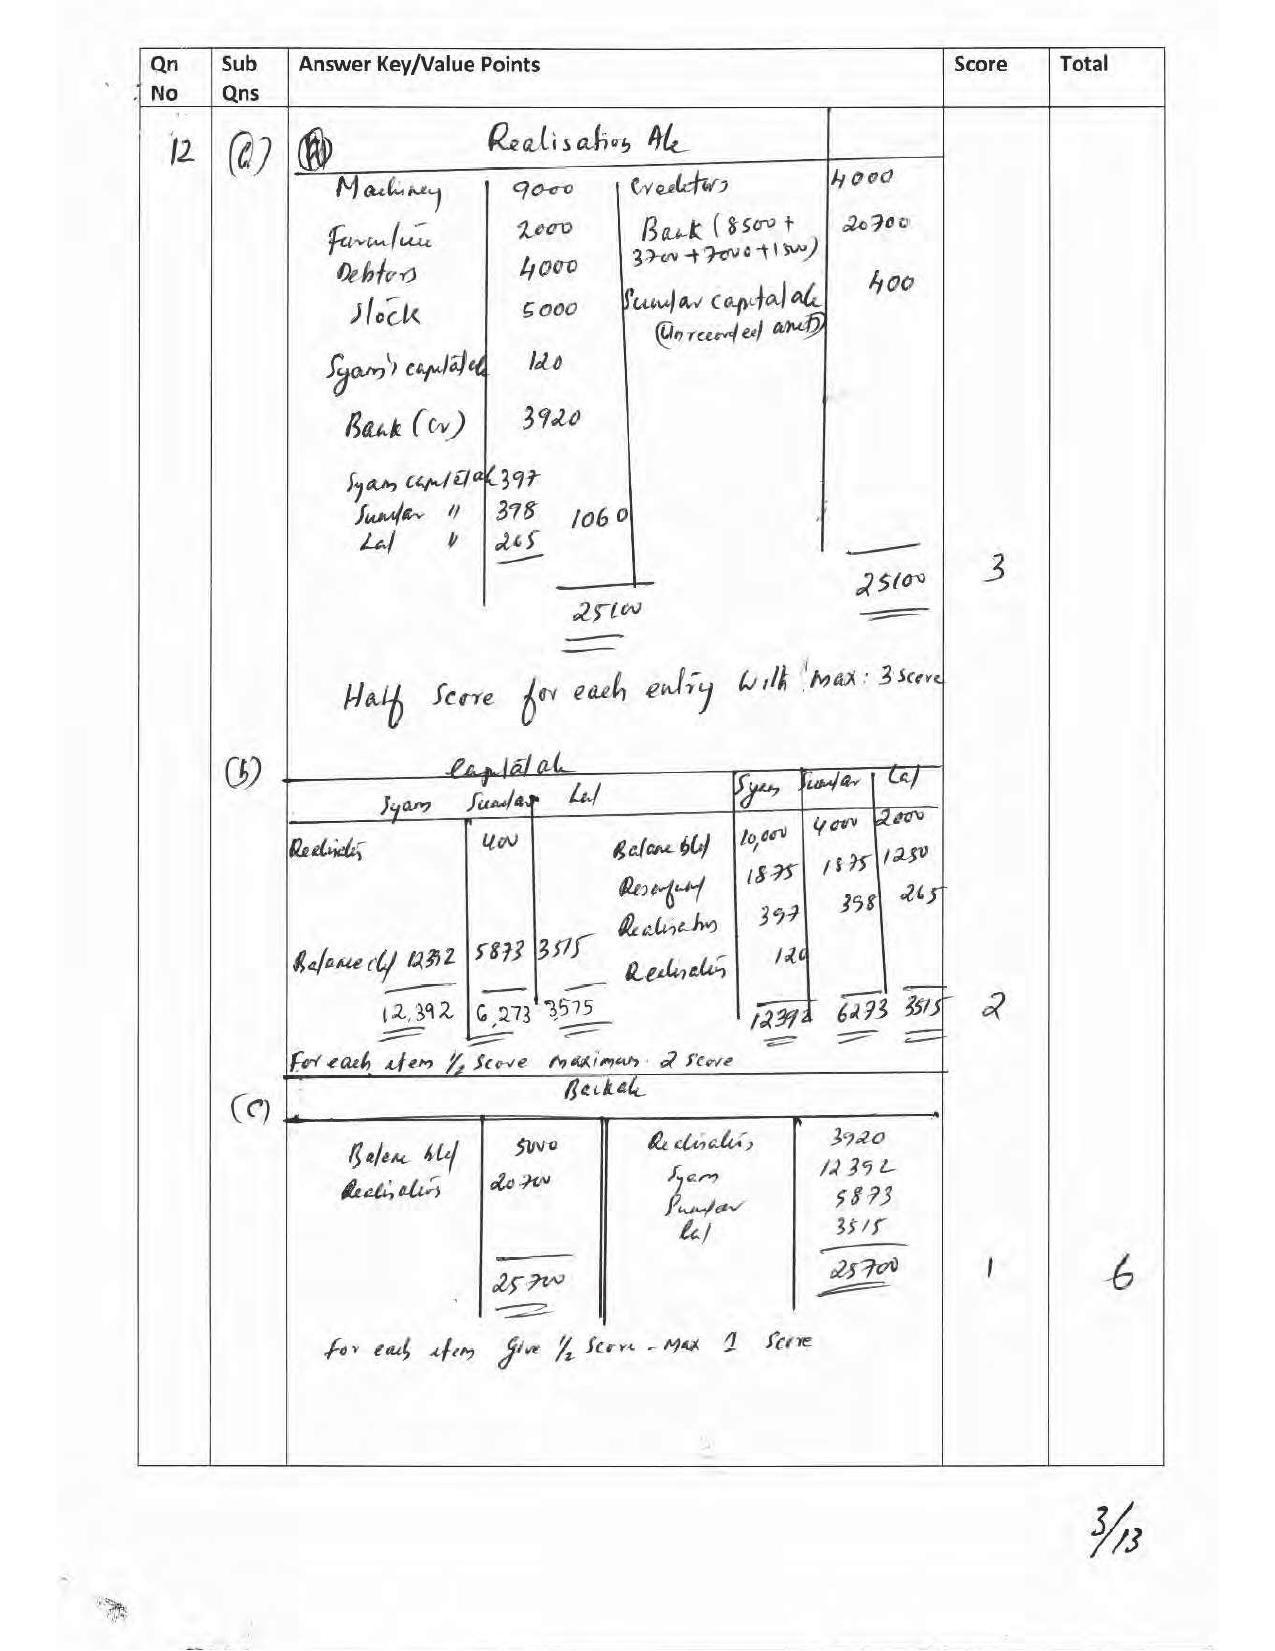 Qn Sub Answer Key/Value Points Score Total
No Qns
12 (a) Realisation A/c
Machinery 9000 Creditors 4000
Furniture 2000 Bank (8500 + 20700
Debtors 4000 3700 + 7000 + 1500)
Stock 5000 Sundar capital a/c 400
(Unrecorded amt)
Syam's capital a/c 120
Bank (Cr) 3920
Syam capital a/c 397
Sundar " 398 1060
Lal " 265
25100 25100 3
Half Score for each entry with Max: 3 score
(b) Capital a/c
Syam Sundar Lal Syam Sundar Lal
Realisation 400 Balance b/d 10,000 4000 2000
Reserve fund 1875 1875 1250
Realisation 397 398 265
Balance c/d 12392 5873 3515 Realisation 120
12,392 6,273 3,515 12392 6273 3515 2
For each item ½ score maximum 2 score
(c) Bank a/c
Balance b/d 5000 Realisation 3920
Realisation 20700 Syam 12392
Sundar 5873
Lal 3515
25700 25700 1 6
For each item give ½ score - Max 1 score
3/13